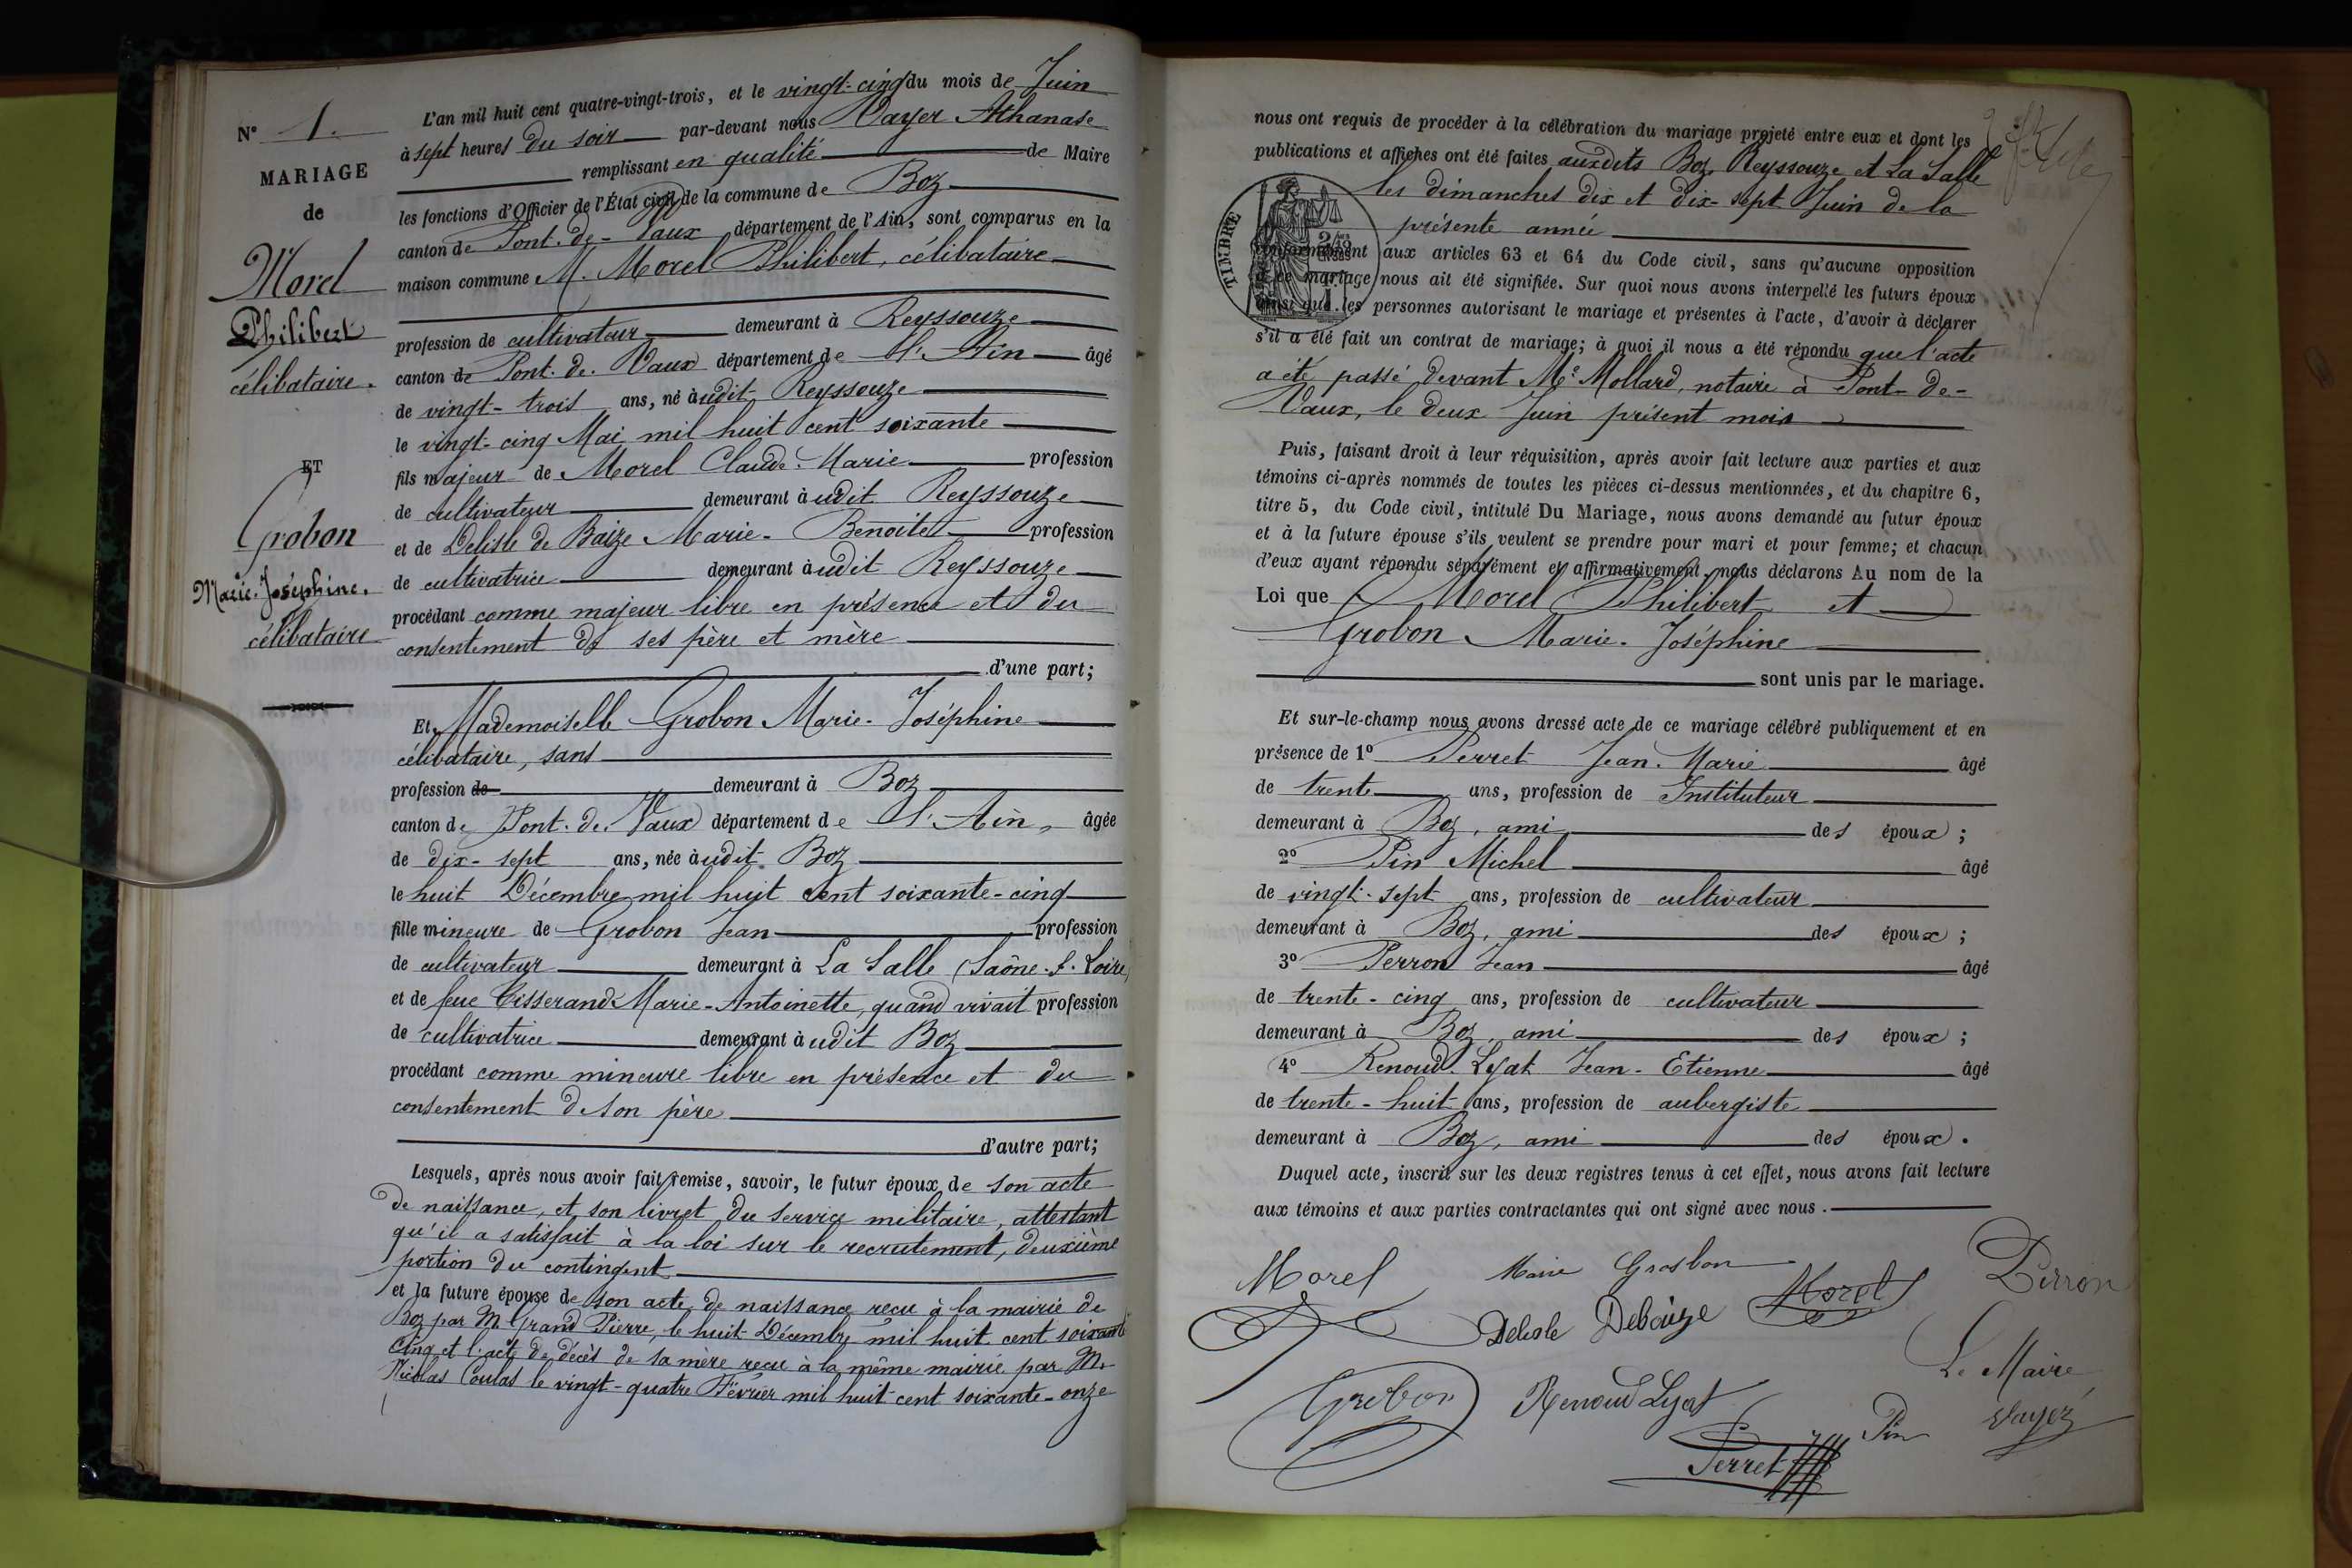 N° 1.
MARIAGE
de
Morel
Philibert
célibataire.
ET
Grobon
Marie-Joséphine.
célibataire
L'an mil huit cent quatre-vingt-trois, et le vingt-cinq du mois de Juin
à sept heures du soir par-devant nous Vayer Athanase
remplissant en qualité de Maire
les fonctions d'Officier de l'État civil de la commune de Boz
canton de Pont-de-Vaux département de l'Ain, sont comparus en la
maison commune M. Morel Philibert, célibataire
profession de cultivateur demeurant à Reyssouze
canton de Pont-de-Vaux département de l'Ain âgé
de vingt-trois ans, né àudit Reyssouze
le vingt-cinq Mai mil huit cent soixante
fils majeur de Morel Claude-Marie profession
de cultivateur demeurant àudit Reyssouze
et de Delisle de Baize Marie-Benoite profession
de cultivatrice demeurant àudit Reyssouze
procédant comme majeur libre en présence et du
consentement de ses père et mère
d'une part;
Et Mademoiselle Grobon Marie-Joséphine
célibataire, sans
profession de demeurant à Boz
canton de Pont-de-Vaux département de l'Ain, âgée
de dix-sept ans, née àudit Boz
le huit Décembre mil huit cent soixante-cinq
fille mineure de Grobon Jean profession
de cultivateur demeurant à La Salle (Saône-&-Loire)
et de feue Tisserand Marie-Antoinette, quand vivait profession
de cultivatrice demeurant àudit Boz
procédant comme mineure libre en présence et du
consentement de son père
d'autre part;
Lesquels, après nous avoir fait remise, savoir, le futur époux de son acte
de naissance, et son livret du service militaire, attestant
qu'il a satisfait à la loi sur le recrutement, deuxième
portion du contingent
et la future épouse de son acte de naissance reçu à la mairie de
Boz par M. Grand Pierre, le huit Décembre mil huit cent soixante
cinq et l'acte de décès de sa mère reçu à la même mairie par M.
Nicolas Coulas le vingt-quatre Février mil huit cent soixante-onze
nous ont requis de procéder à la célébration du mariage projeté entre eux et dont les
publications et affiches ont été faites auxdits Boz, Reyssouze et La Salle
les dimanches dix et dix-sept Juin de la
présente année
TIMBRE
conformément aux articles 63 et 64 du Code civil, sans qu'aucune opposition
à ce mariage nous ait été signifiée. Sur quoi nous avons interpellé les futurs époux
ainsi que les personnes autorisant le mariage et présentes à l'acte, d'avoir à déclarer
s'il a été fait un contrat de mariage; à quoi il nous a été répondu que l'acte
a été passé devant Me Mollard, notaire à Pont-de-
Vaux, le deux Juin présent mois
Puis, faisant droit à leur réquisition, après avoir fait lecture aux parties et aux
témoins ci-après nommés de toutes les pièces ci-dessus mentionnées, et du chapitre 6,
titre 5, du Code civil, intitulé Du Mariage, nous avons demandé au futur époux
et à la future épouse s'ils veulent se prendre pour mari et pour femme; et chacun
d'eux ayant répondu séparément et affirmativement, nous déclarons Au nom de la
Loi que Morel Philibert et
Grobon Marie-Joséphine
sont unis par le mariage.
Et sur-le-champ nous avons dressé acte de ce mariage célébré publiquement et en
présence de 1° Perret Jean-Marie âgé
de trente ans, profession de Instituteur
demeurant à Boz, ami des époux;
2° Pin Michel âgé
de vingt-sept ans, profession de cultivateur
demeurant à Boz, ami des époux;
3° Perron Jean âgé
de trente-cinq ans, profession de cultivateur
demeurant à Boz, ami des époux;
4° Renoud Lyat Jean-Etienne âgé
de trente-huit ans, profession de aubergiste
demeurant à Boz, ami des époux.
Duquel acte, inscrit sur les deux registres tenus à cet effet, nous avons fait lecture
aux témoins et aux parties contractantes qui ont signé avec nous.
Morel Marie Grosbon Morel Perron
Delisle Debaize
Le Maire
Grobon Renoud Lyat Pin Vayer
Perret